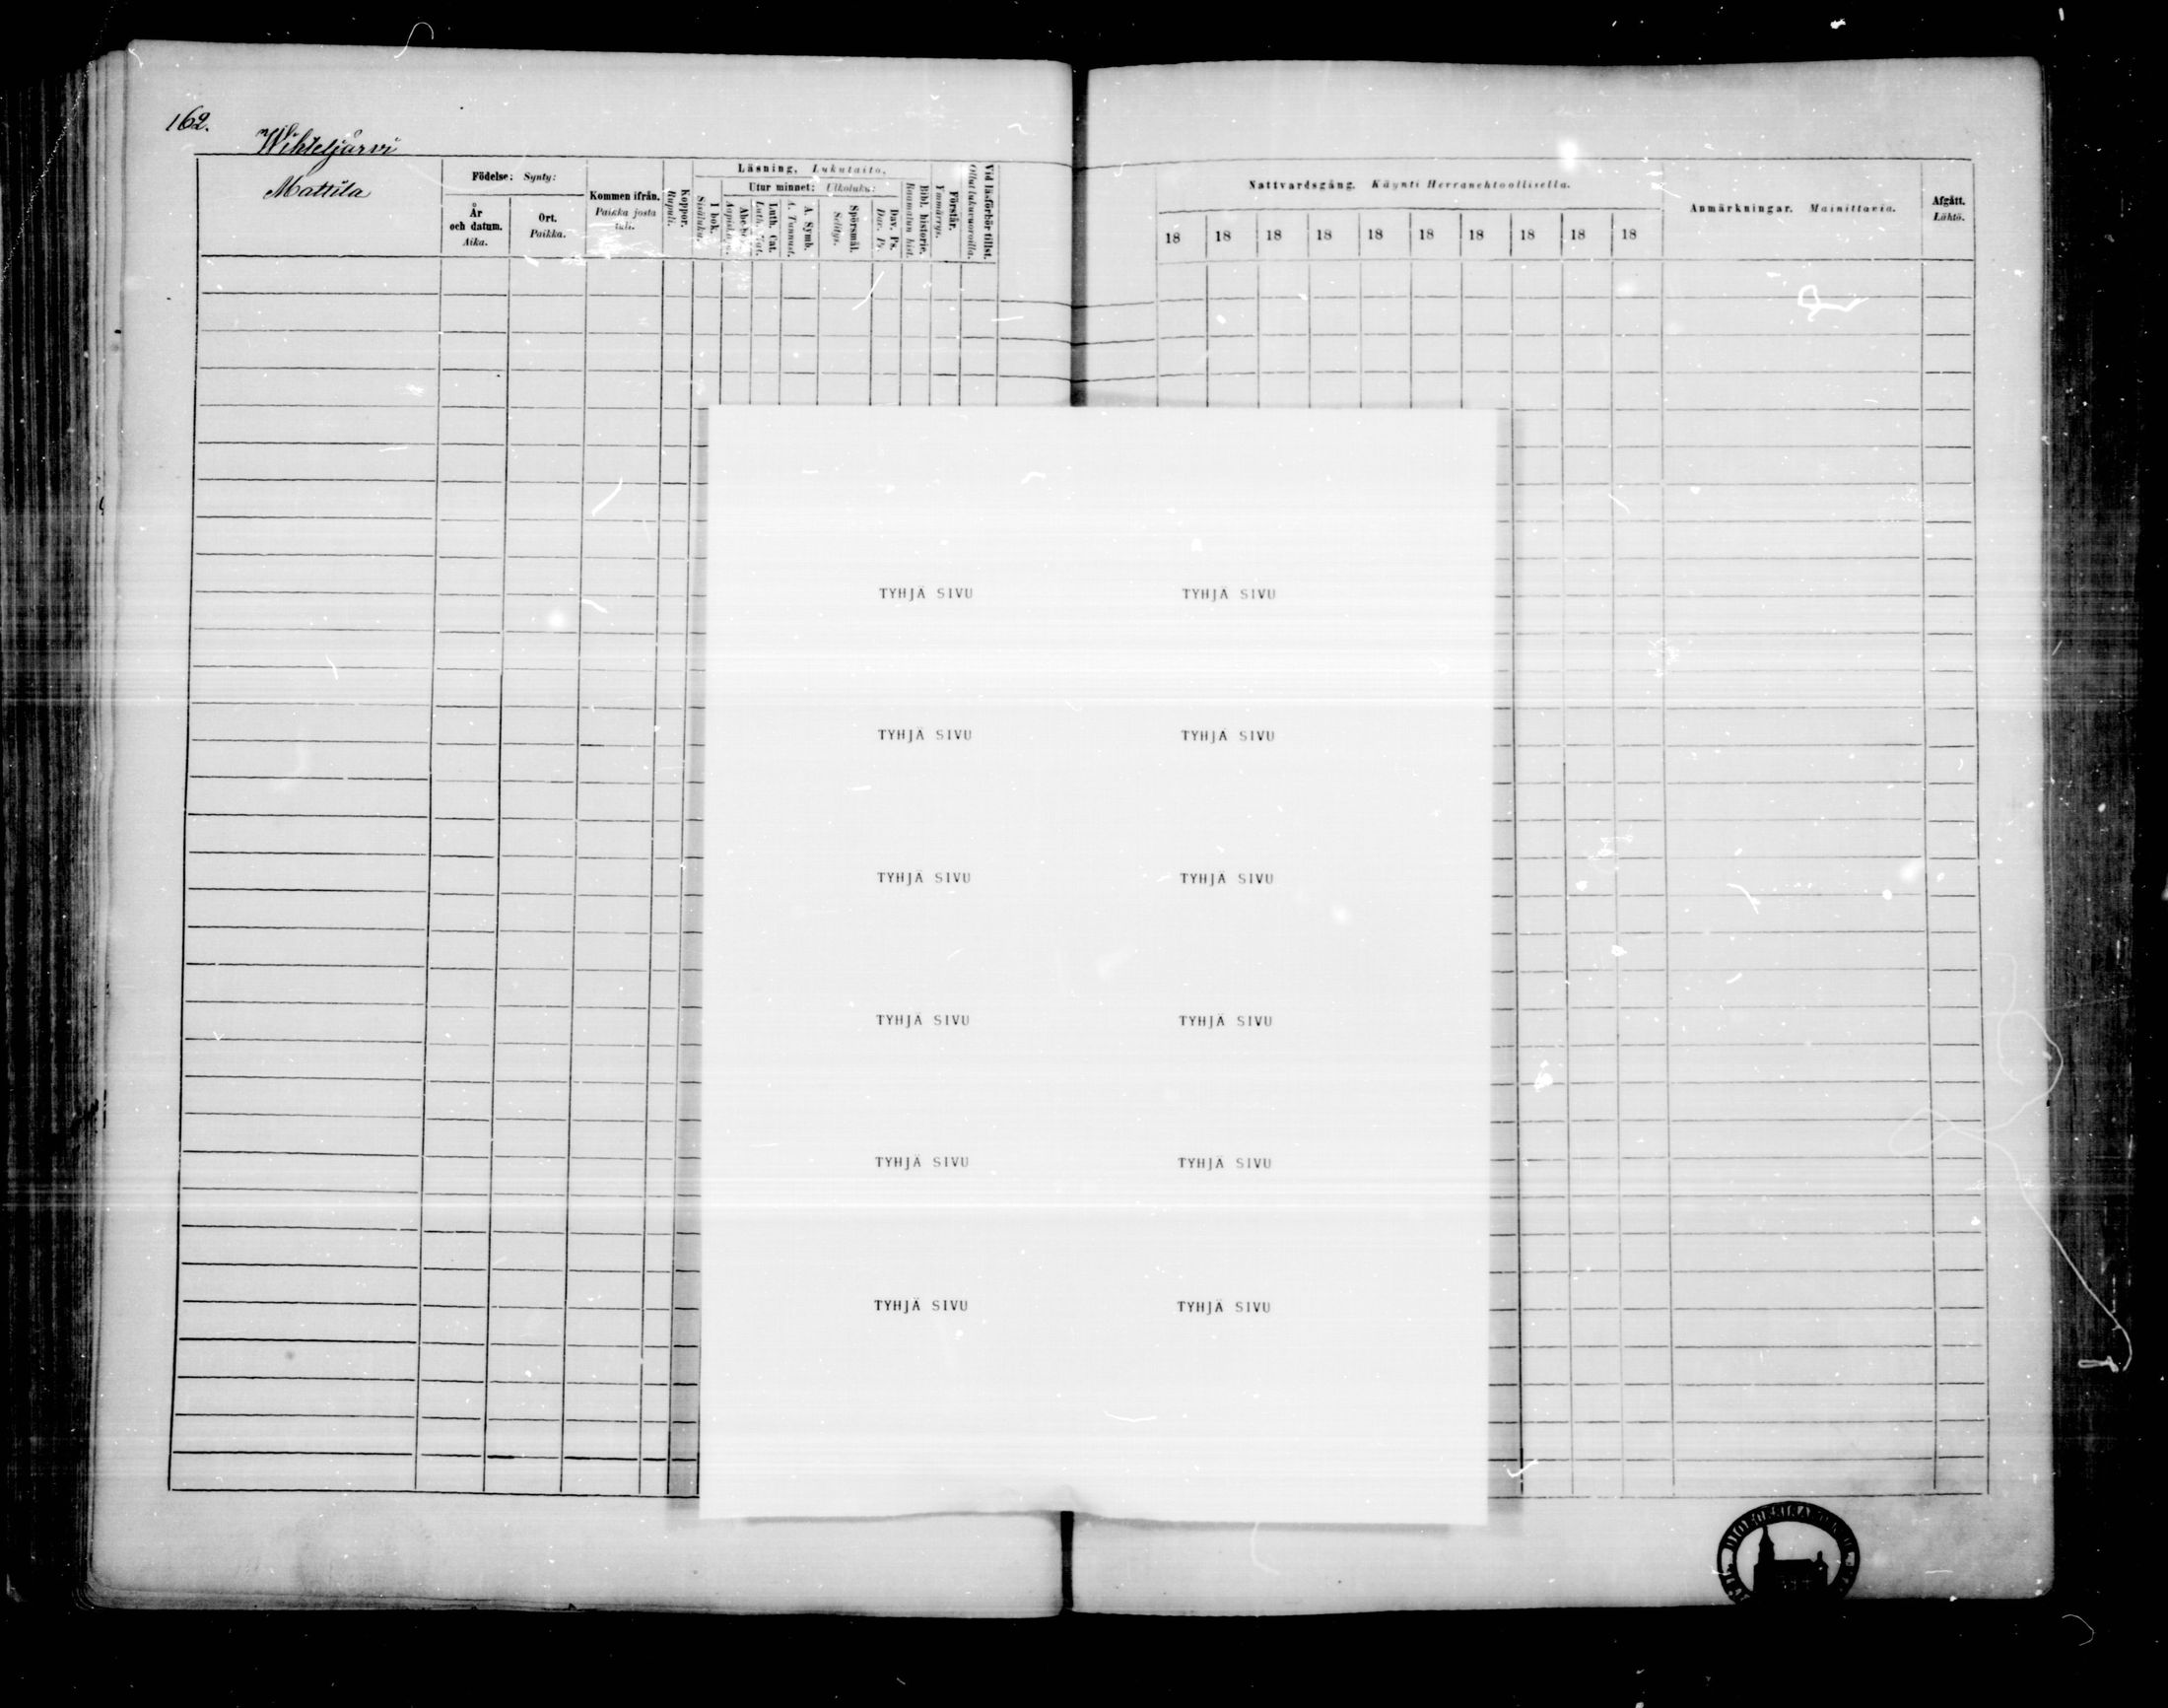 162.
Wihteljärvi
Mattila
Födelse: Synty:
År och datum. Aika.
Ort. Paikka.
Kommen ifrån. Paikka josta tuli.
Koppor. Rupuli.
Läsning, Lukutaito,
I bok. Sisäluku.
Utur minnet: Ulkoluku:
Luth. Cat.
A. Symb. A. Tunnust.
Spörsmål. Selitys.
Dav. Ps. Dav. Ps.
Bibl. historie. Raamatun hist.
Förstår. Ymmärrys.
Vid läsförhör tillst. Ollut lukuvuoroilla.
Nattvardsgång. Käynti Herranehtoollisella.
18 18 18 18 18 18 18 18 18 18
Anmärkningar. Mainittavia.
Afgått. Lähtö.
TYHJÄ SIVU TYHJÄ SIVU
TYHJÄ SIVU TYHJÄ SIVU
TYHJÄ SIVU TYHJÄ SIVU
TYHJÄ SIVU TYHJÄ SIVU
TYHJÄ SIVU TYHJÄ SIVU
TYHJÄ SIVU TYHJÄ SIVU